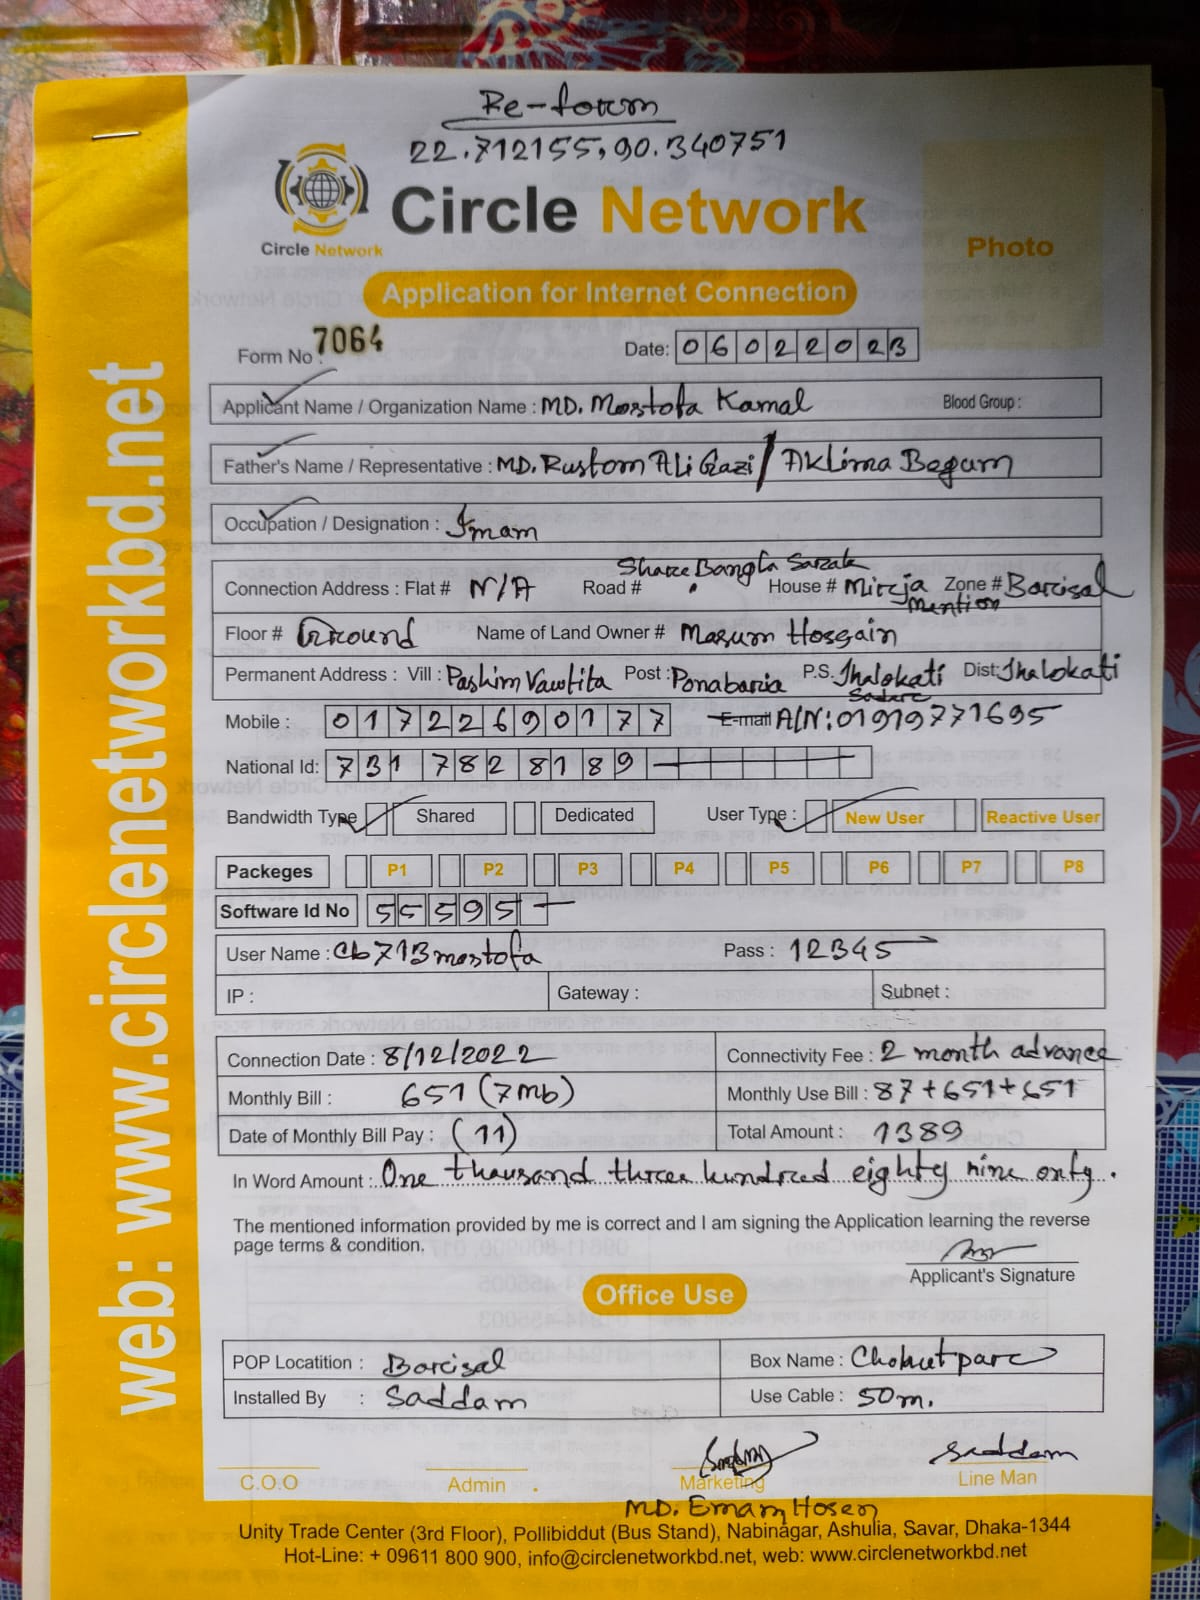 Re-form
22.712155, 90.340751
Circle Network
Circle Network
Photo
Application for Internet Connection
Form No : 7064
Date: 06022023
Applicant Name / Organization Name : MD. Mostofa Kamal Blood Group :
Father's Name / Representative : MD. Rustom Ali Gazi / Aklima Begum
Occupation / Designation : Imam
Connection Address : Flat # N/A Road # Share Bangla Sarak House # Mirja Mention Zone # Barisal
Floor # Ground Name of Land Owner # Masum Hossain
Permanent Address : Vill : Pashim Vawtita Post : Ponabaria P.S. Jhalokati Sadar Dist: Jhalokati
Mobile : 01722690177 E-mail A/N: 01919771695
National Id: 731 782 8189
Bandwidth Type Shared Dedicated User Type : New User Reactive User
Packeges P1 P2 P3 P4 P5 P6 P7 P8
Software Id No 55595
User Name : cb713mostofa Pass : 12345
IP : Gateway : Subnet :
Connection Date : 8/12/2022 Connectivity Fee : 2 month advance
Monthly Bill : 651 (7mb) Monthly Use Bill : 87+651+651
Date of Monthly Bill Pay : (11) Total Amount : 1389
In Word Amount : One thousand three hundred eighty nine only.
The mentioned information provided by me is correct and I am signing the Application learning the reverse
page terms & condition.
Applicant's Signature
Office Use
POP Locatition : Barisal Box Name : Chohutpar
Installed By : Saddam Use Cable : 50m.
Saddam
C.O.O Admin Marketing Line Man
MD. Emam Hosen
Unity Trade Center (3rd Floor), Pollibiddut (Bus Stand), Nabinagar, Ashulia, Savar, Dhaka-1344
Hot-Line: + 09611 800 900, info@circlenetworkbd.net, web: www.circlenetworkbd.net
web: www.circlenetworkbd.net